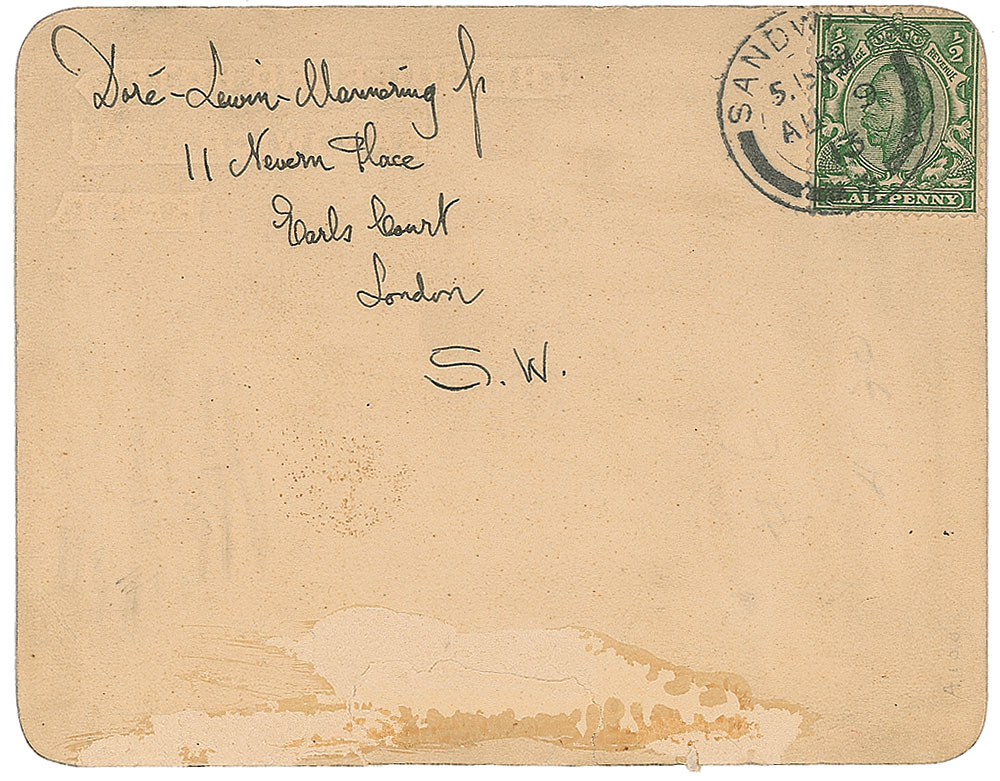 Doré-Lewin-Mannering
11 Nevern Place
Earls Court
London
S. W.
SANDW
5.15 PM
AU 9
½ ½
POSTAGE REVENUE
HALFPENNY